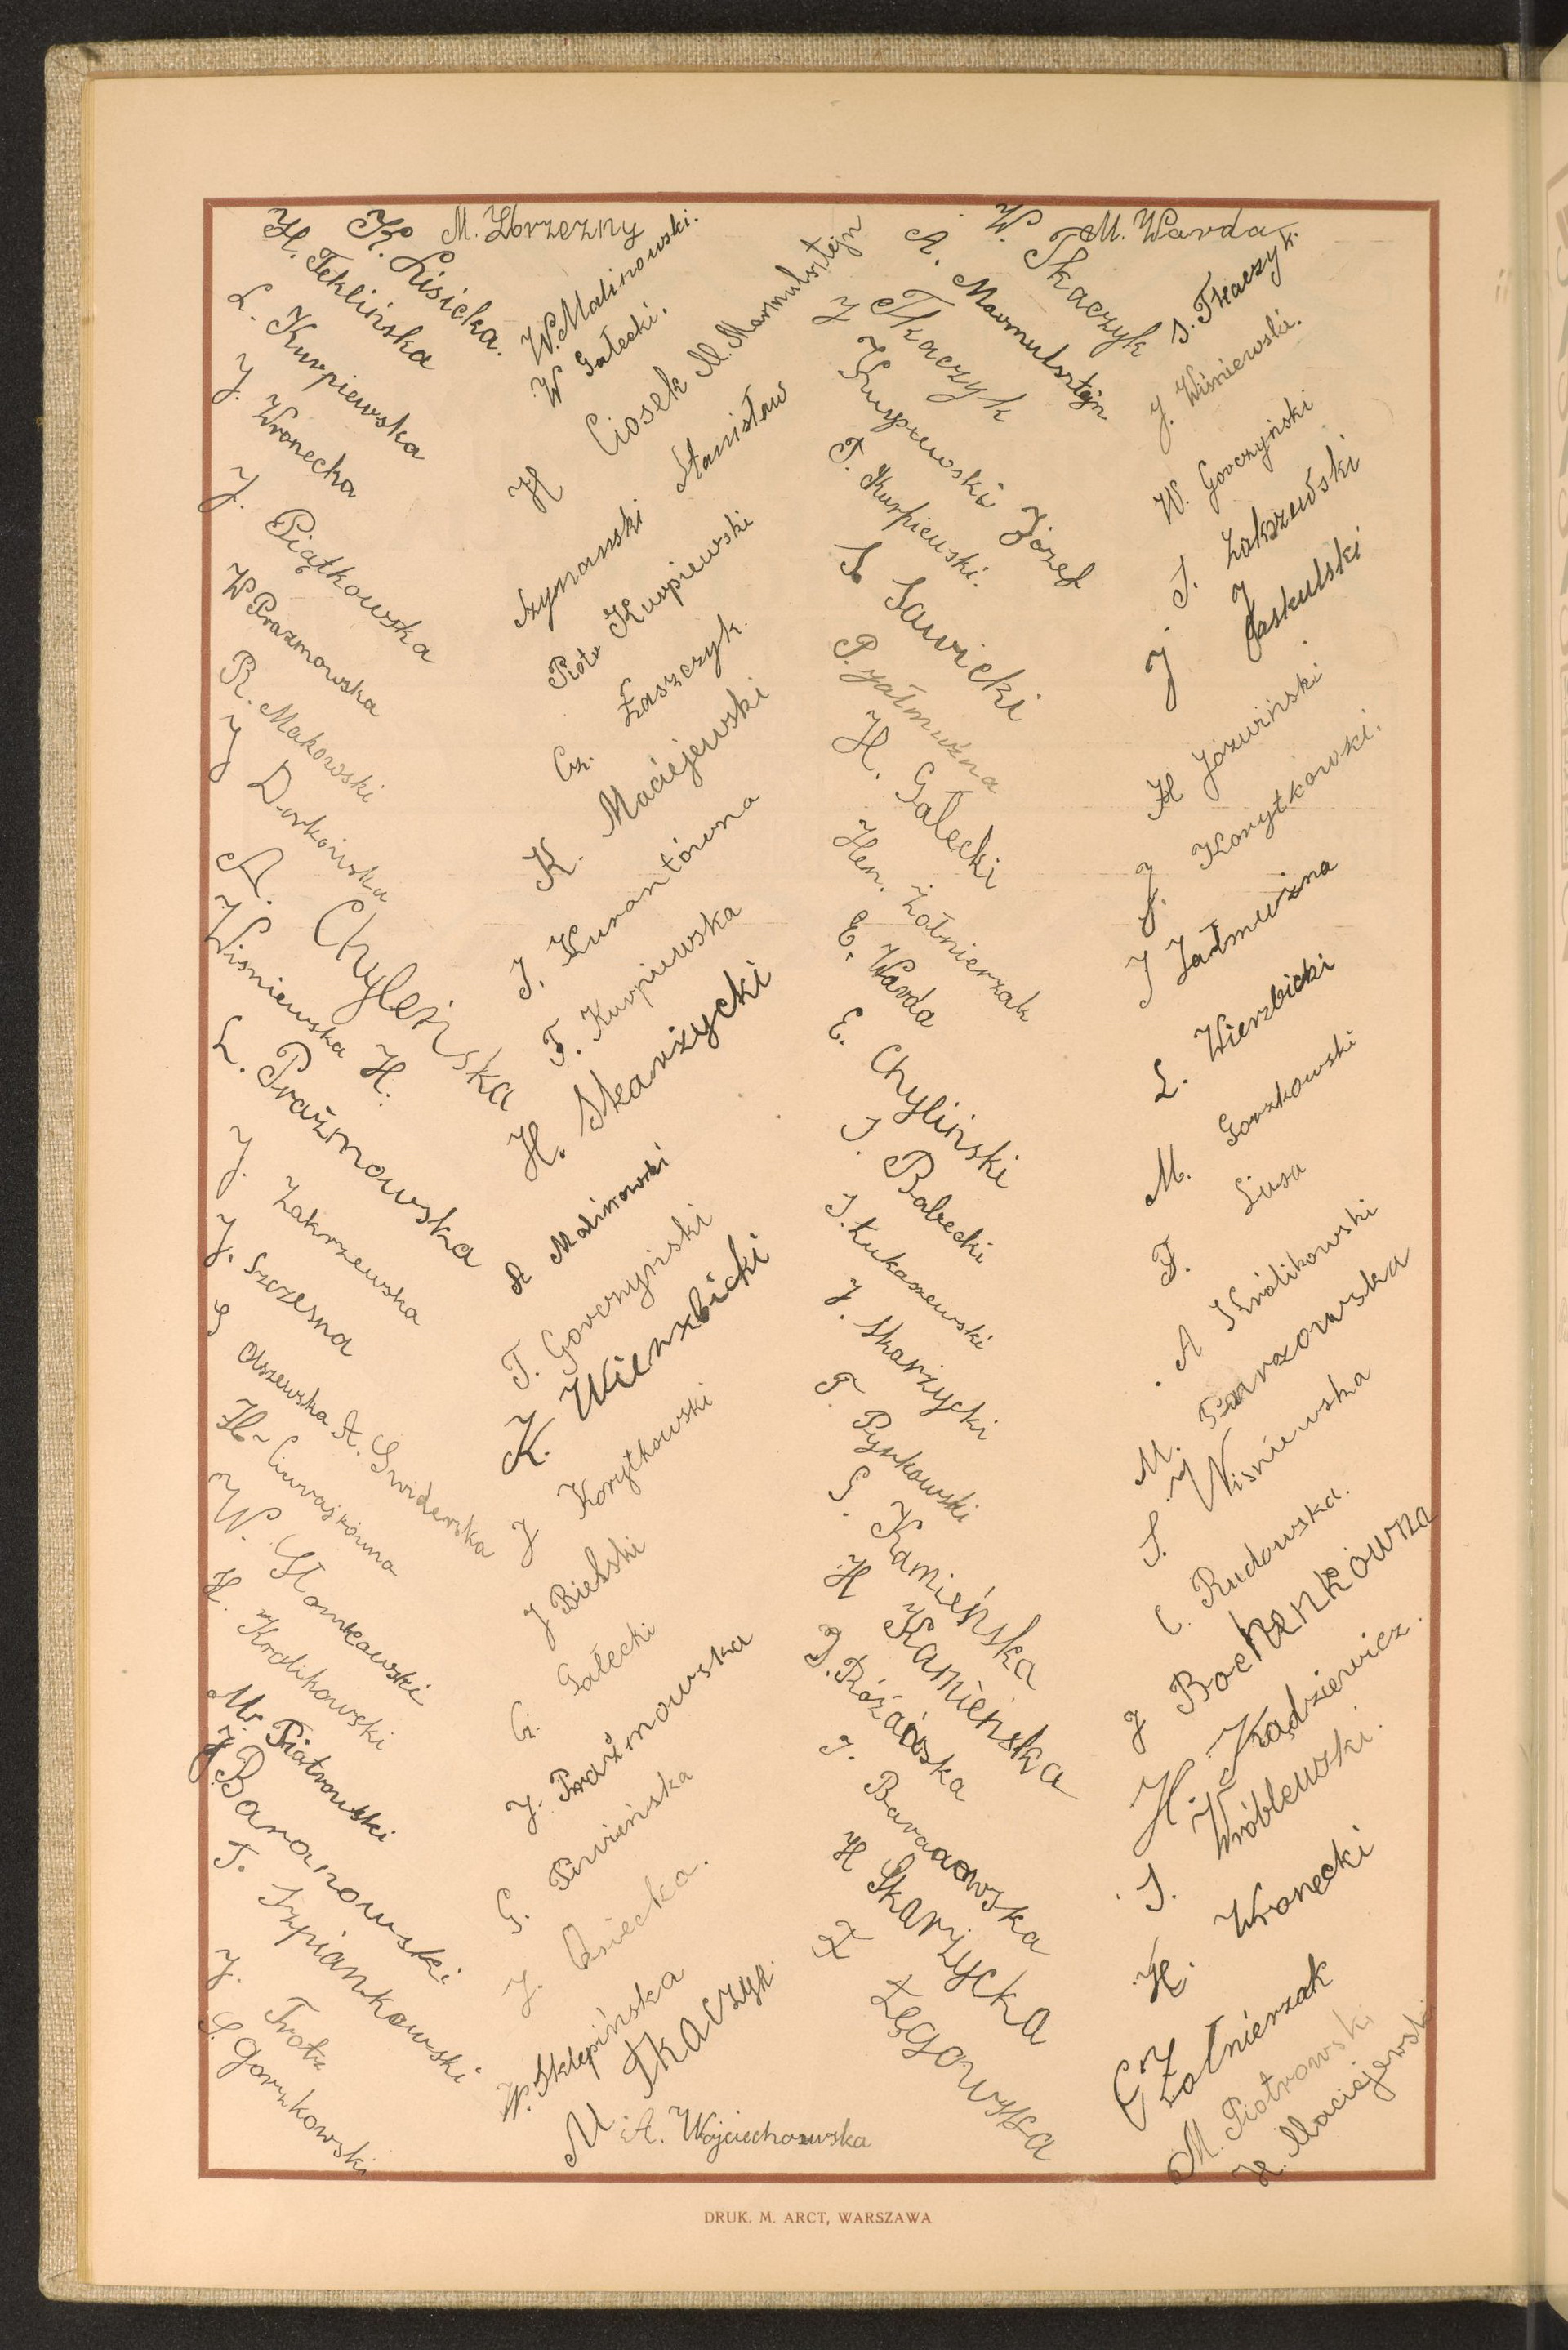 M. Zbrzezny
K. Lisicka.
H. Teklińska
L. Kurpiewska
J. Wronecka
J. Piątkowska
W Prazmowska
R. Makowski
J Dorkowska
A. Chyleńska
Wisniewska H.
L. Prażmowska
J. Zakrzewska
J. Szczesna
Olszewska A. Swiderska
W. Słomkowski
H. Krolikowski
M. Piotrowski
J. Baranowski
T. Szpiankowski
J. Trotz
S. Gorzkowski
W. Malinowski.
W Gałecki.
H Ciosek
M. Marmulsztejn
Szymanski Stanisław
Piotr Kurpiewski
Cz. Łaszczyk.
K. Maciejewski
J. Kurantówna
F. Kurpiewska
H. Skarżycki
Malinowski
T. Gorczyński
K. Wierzbicki
J Korytkowski
J Bielski
Cz. Gałecki
J. Prażmowska
G. Piwińska
J. Osiecka.
W. Sklepińska
M Tkaczyk.
A. Wojciechowska
W. Tkaczyk
A. Marmulsztejn
J Tkaczyk
Kurpiewski Józef
T. Kurpiewski.
S. Sawicki
P. Jałmużna
H. Gałecki
Hen. Żołnierzak
E. Warda
E. Chyliński
J. Babecki
J. Łukaszewski
J. Skarżycki
T. Pyrkowski
G. Kamieńska
H Kamieńska
J. Baranowska
H Skarżycka
Z Łęgowska
M. Warda
S. Tkaczyk.
J. Wiśniewski.
W. Gorczyński
J. Zakrzewski
J Jaskulski
H Józwiński
J. Korytkowski.
J Jałmużna
L. Wierzbicki
M. Gorzkowski
F. Lusa
A Królikowski
M. Tarzowska
S. Wisniewska
C. Rudowska.
J Bochenkówna
H. Kądziewicz.
J. Wróblewski.
H. Wronecki
Cz Żołnierzak
M. Piotrowski
H. Maciejewski
DRUK. M. ARCT, WARSZAWA